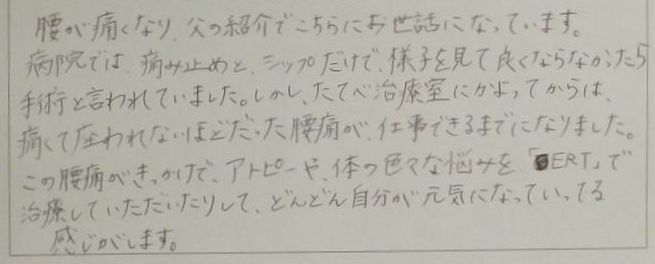 腰が痛くなり、父の紹介でこちらにお世話になっています。
病院では、痛み止めと、シップだけで、様子を見て良くならなかったら
手術と言われていました。しかし、たてべ治療室にかよってからは、
痛くて座われないほどだった腰痛が、仕事できるまでになりました。
この腰痛がきっかけで、アトピーや、体の色々な悩みを、「BERT」で
治療していただいたりして、どんどん自分が元気になっていってる
感じがします。